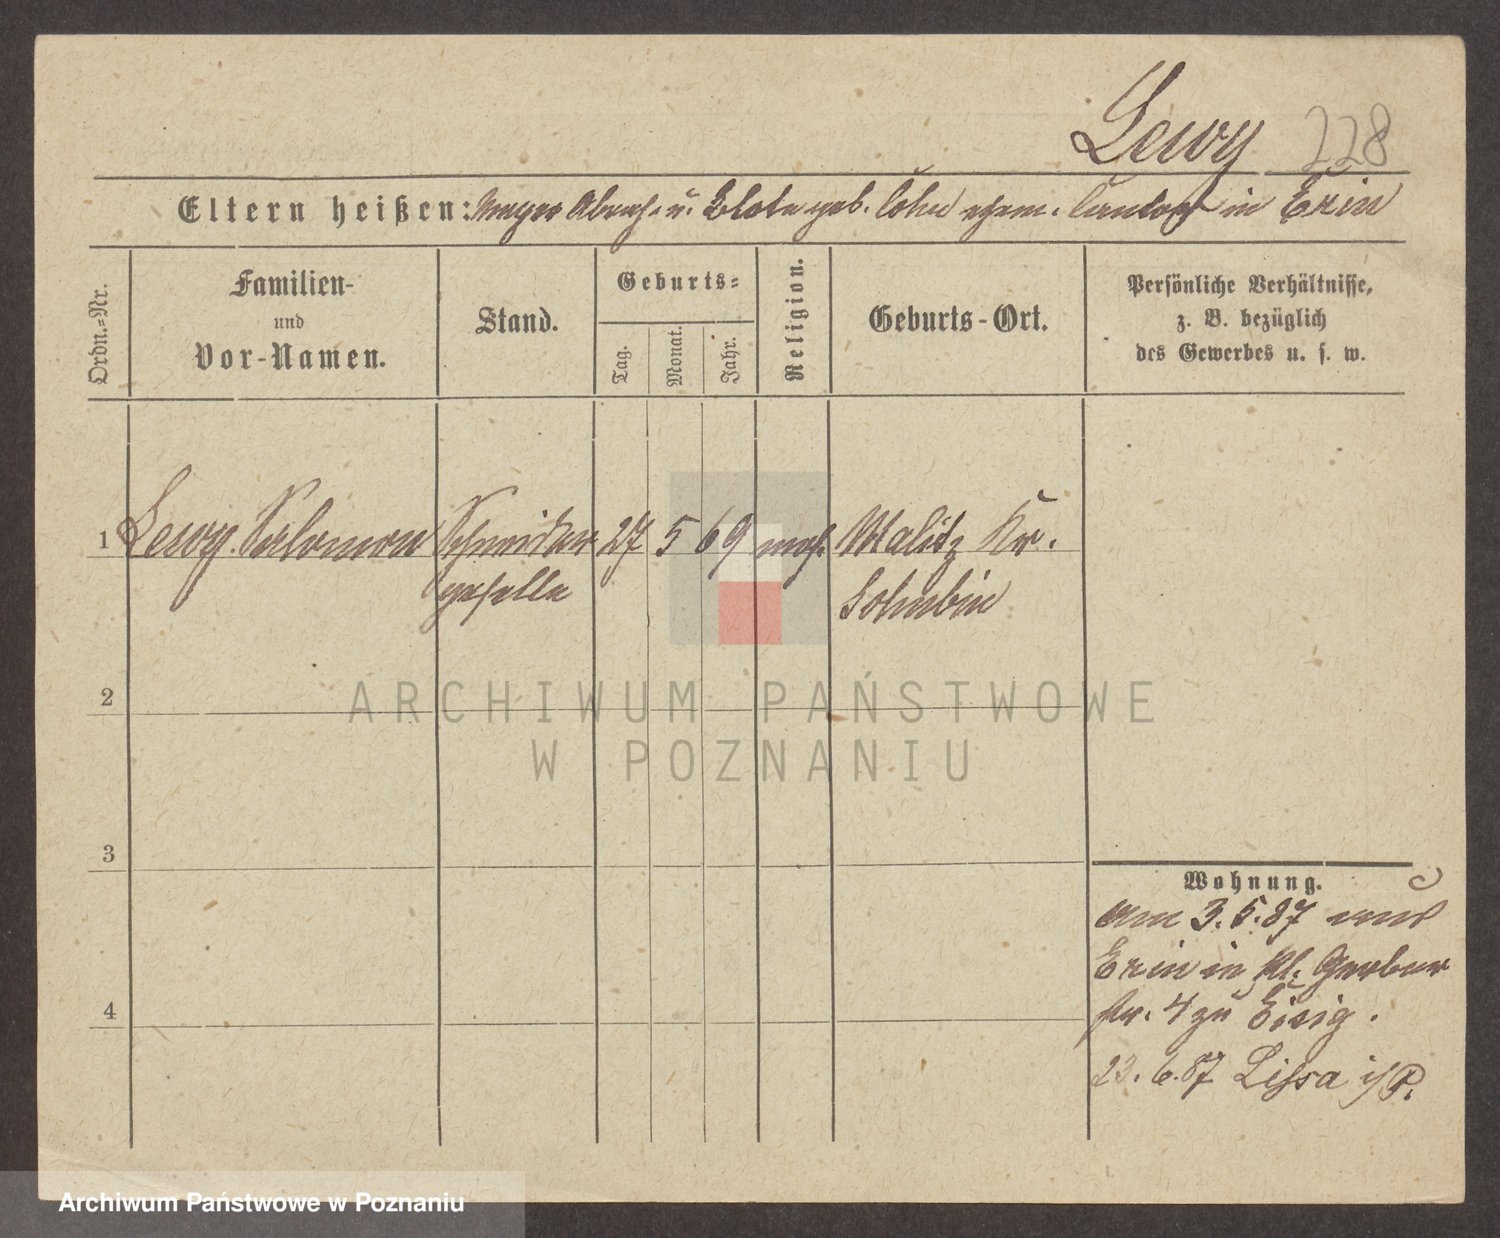 Lewy 228
Eltern heißen: Meyer Abrah. u. geb. Cohn ehem. Cantor in Exin
Ordn.-Nr.
Familien-
und
Vor-Namen.
Stand.
Geburts-
Tag.
Monat.
Jahr.
Religion.
Geburts-Ort.
Persönliche Verhältnisse,
z. B. bezüglich
des Gewerbes u. s. w.
1 Lewy Salomon Schneider 27 5 69 mos. Malitz Kr.
geselle Schubin
2
ARCHIWUM PAŃSTWOWE
W POZNANIU
3
Wohnung.
am 3.5.87 aus
Exin in Kl. Gerber
str. 4 zu Eisig.
4
23.6.87 Lissa i/P.
Archiwum Państwowe w Poznaniu